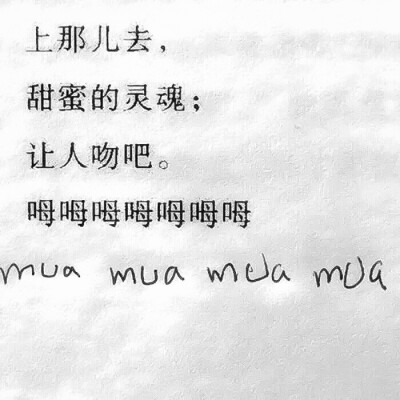 上那儿去，
甜蜜的灵魂；
让人吻吧。
呣呣呣呣呣呣呣
mua mua mua mua